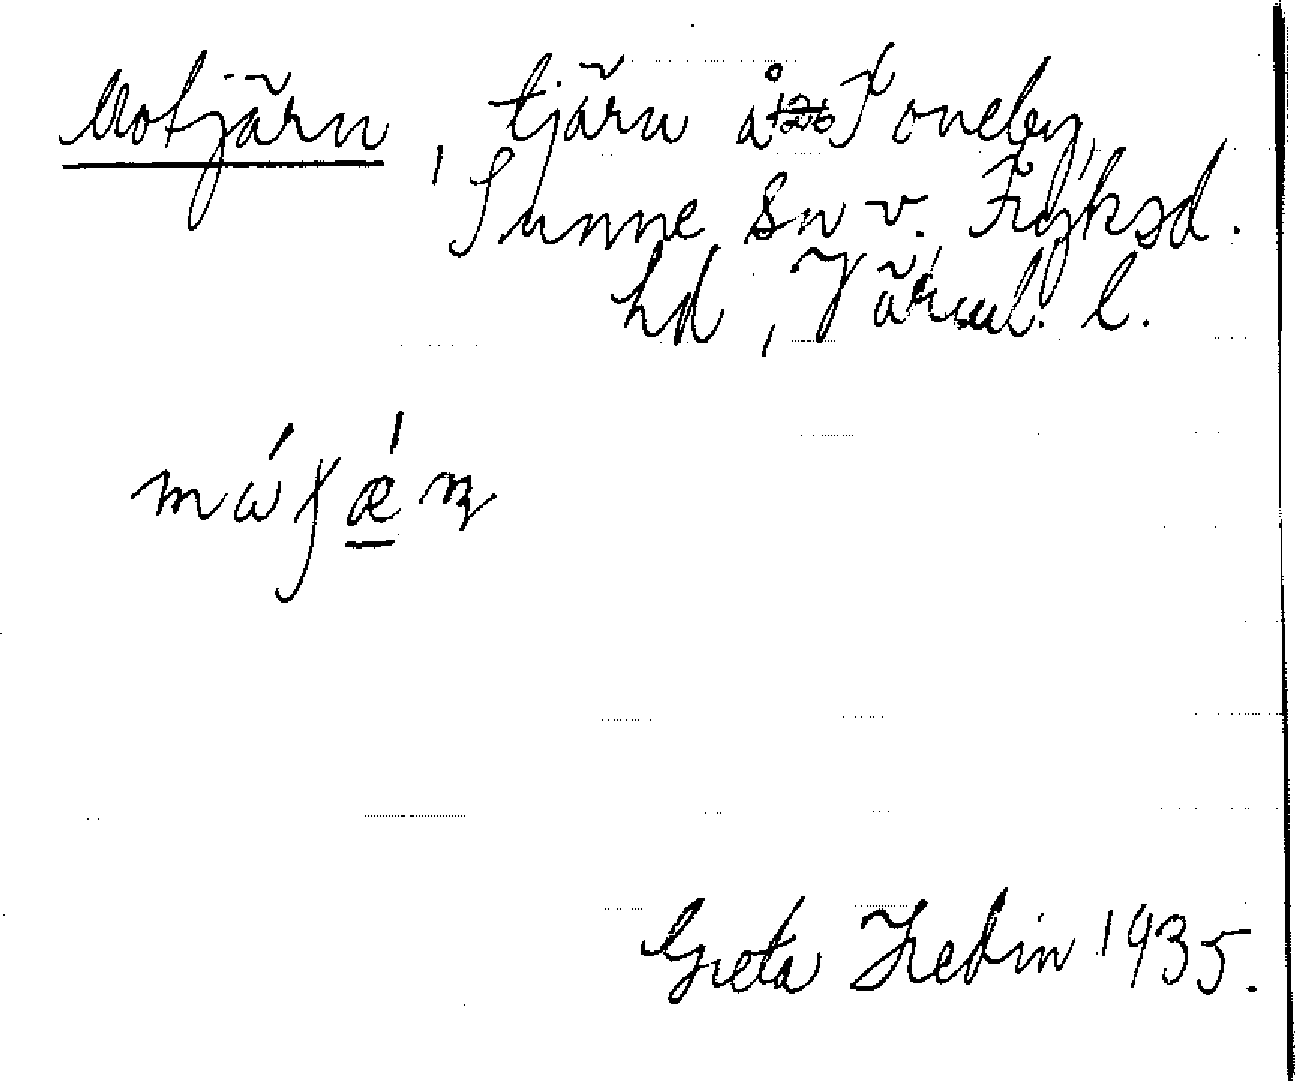 Motjärn, tjärn å 126 Toneby,
Sunne sn v. Fryksd.
hd, Värml. l.
mάʃǽn
Greta Hedin 1935.